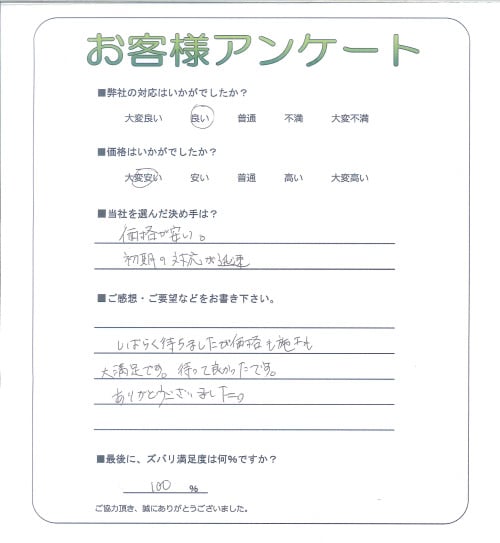 お客様アンケート
■弊社の対応はいかがでしたか？
大変良い 良い 普通 不満 大変不満
■価格はいかがでしたか？
大変安い 安い 普通 高い 大変高い
■当社を選んだ決め手は？
価格が安い。
初期の対応が迅速
■ご感想・ご要望などをお書き下さい。
しばらく待ちましたが価格も施工も
大満足です。待って良かったです。
ありがとうございました。
■最後に、ズバリ満足度は何％ですか？
100 %
ご協力頂き、誠にありがとうございました。